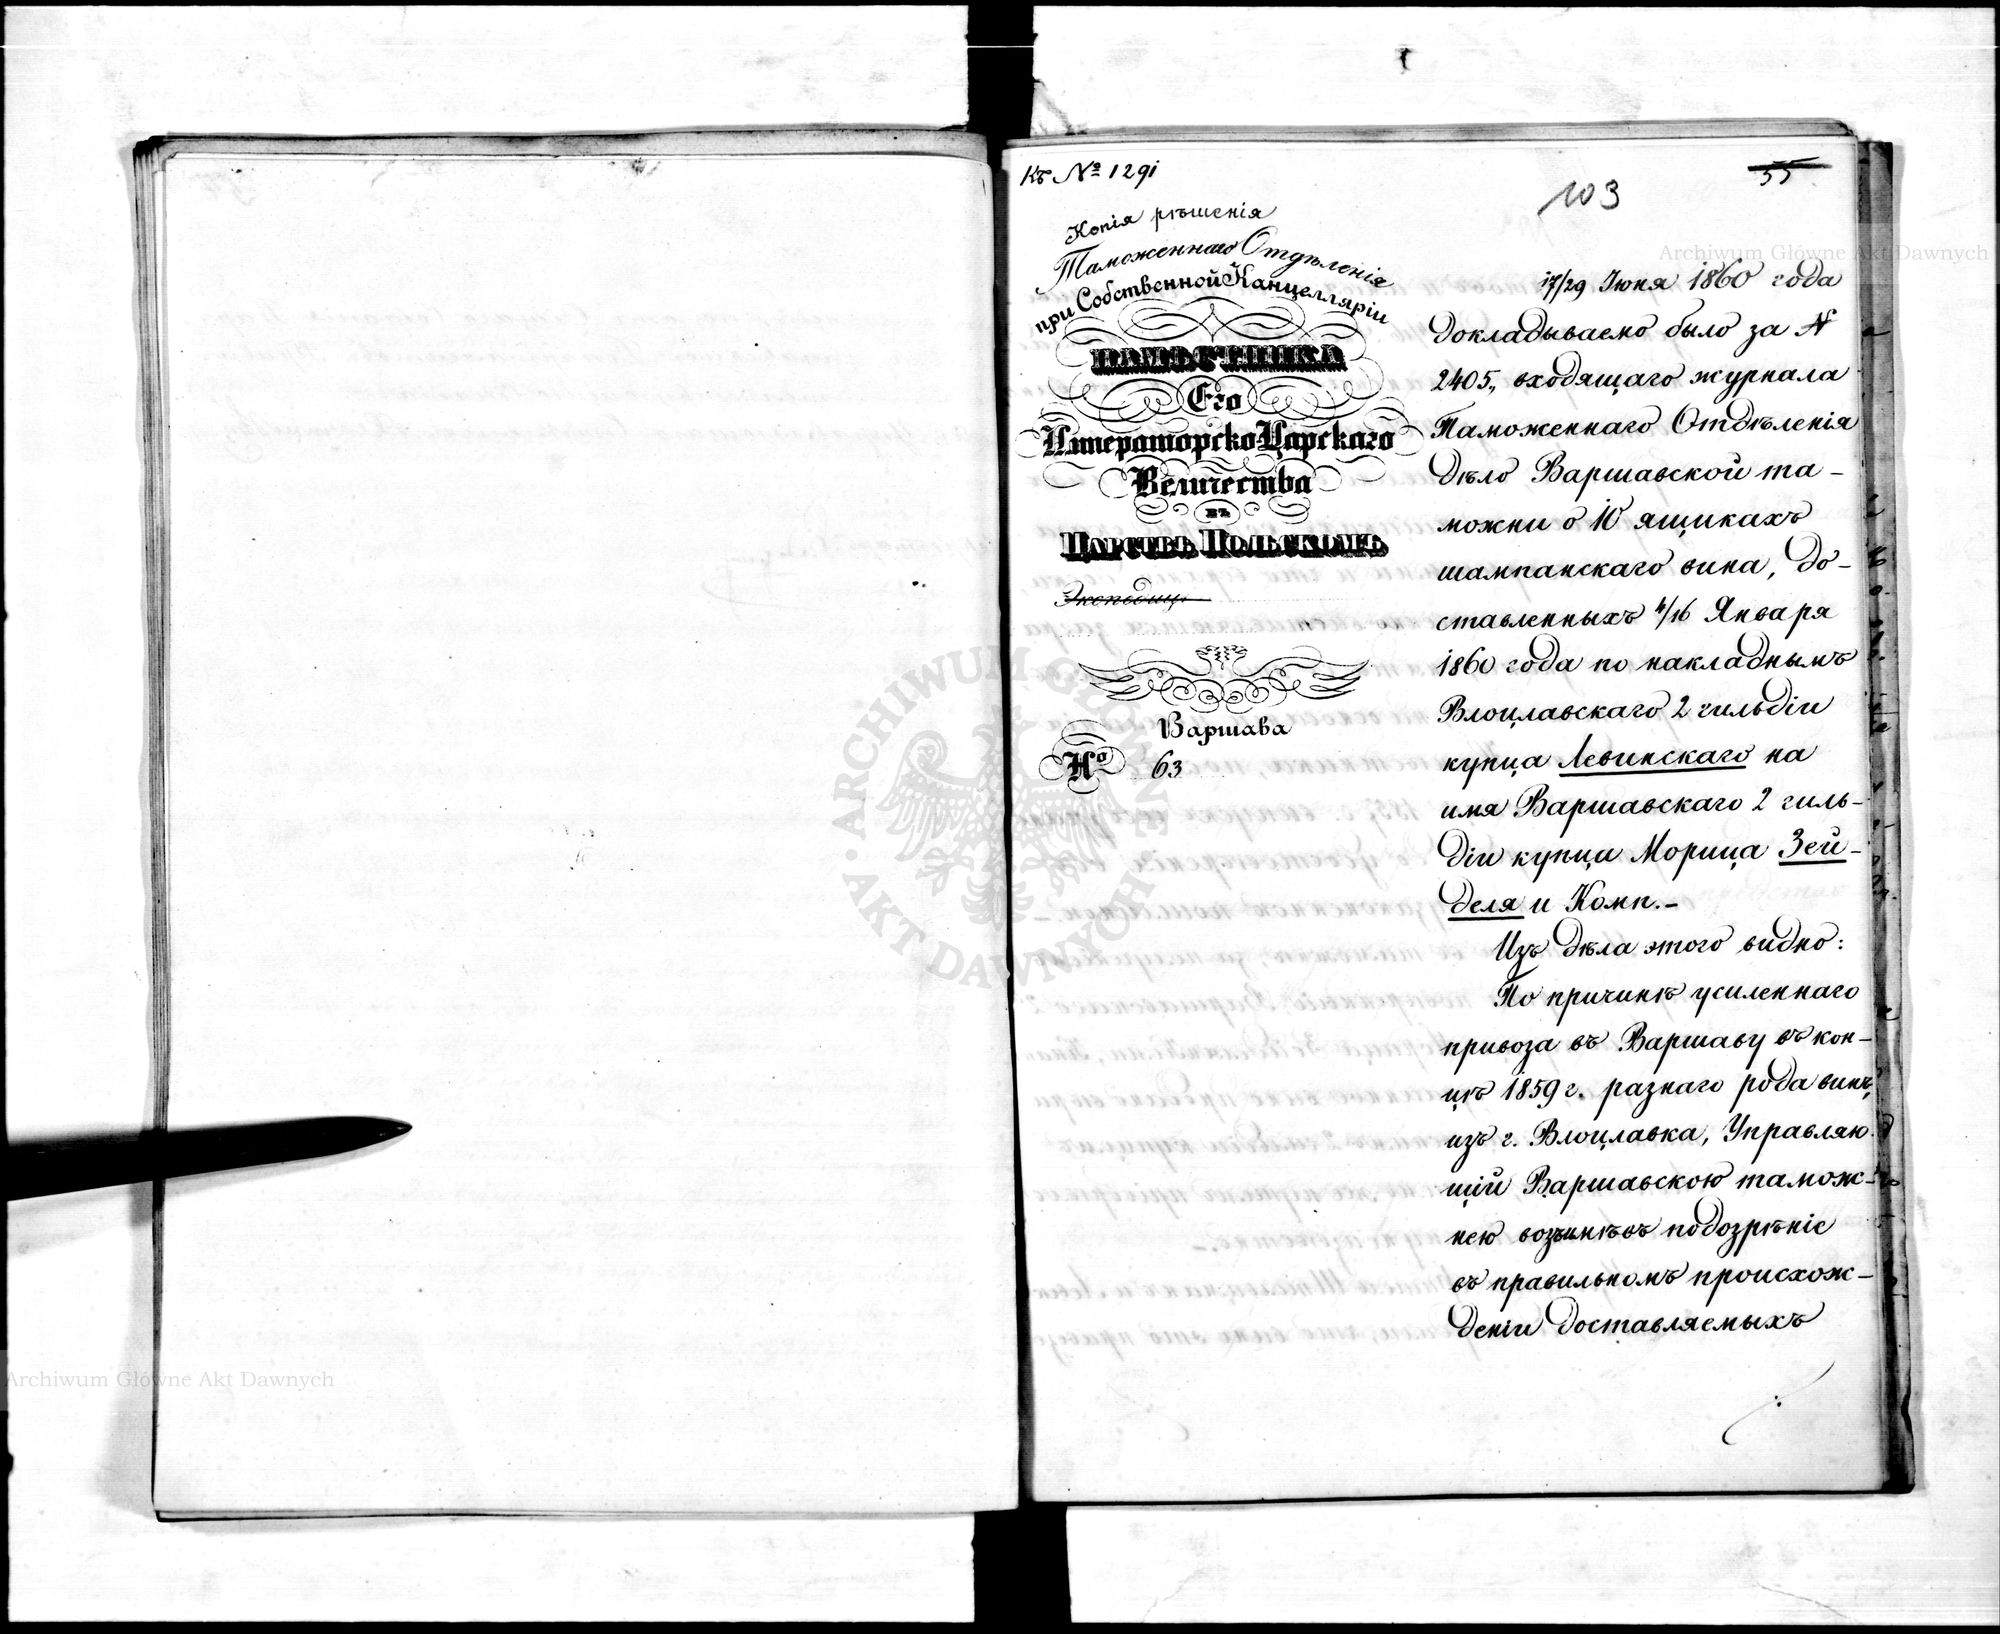 Къ № 1291
103
55
Копія рѣшенія
Таможеннаго Отдѣленія
при Собственной Канцелляріи
НАМѢСТНИКА
Его
Императорско Царскаго
Величества
въ
Царствѣ Польскомъ
Экспедиц.
Варшава
№ 63
17/29 Іюня 1860 года
докладываемо было за №
2405„ входящаго журнала
Таможеннаго Отдѣленія
дѣло Варшавской та-
можни о 10 ящикахъ
шампанскаго вина, до-
ставленныхъ 4/16 Января
1860 года по накладнымъ
Влоцлавскаго 2 гильдіи
купца Левинскаго на
имя Варшавскаго 2 гиль-
діи купца Морица Зей-
деля и Комп.-
Изъ дѣла этого видно:
По причинѣ усиленнаго
привоза въ Варшаву въ кон-
цѣ 1859 г. разнаго рода винъ
изъ г. Влоцлавка, Управляю-
щій Варшавскою тамож-
нею возъимѣвъ подозрѣніе
въ правильномъ происхож-
деніи доставляемыхъ
Archiwum Główne Akt Dawnych
ARCHIWUM GŁÓWNE AKT DAWNYCH
Archiwum Główne Akt Dawnych